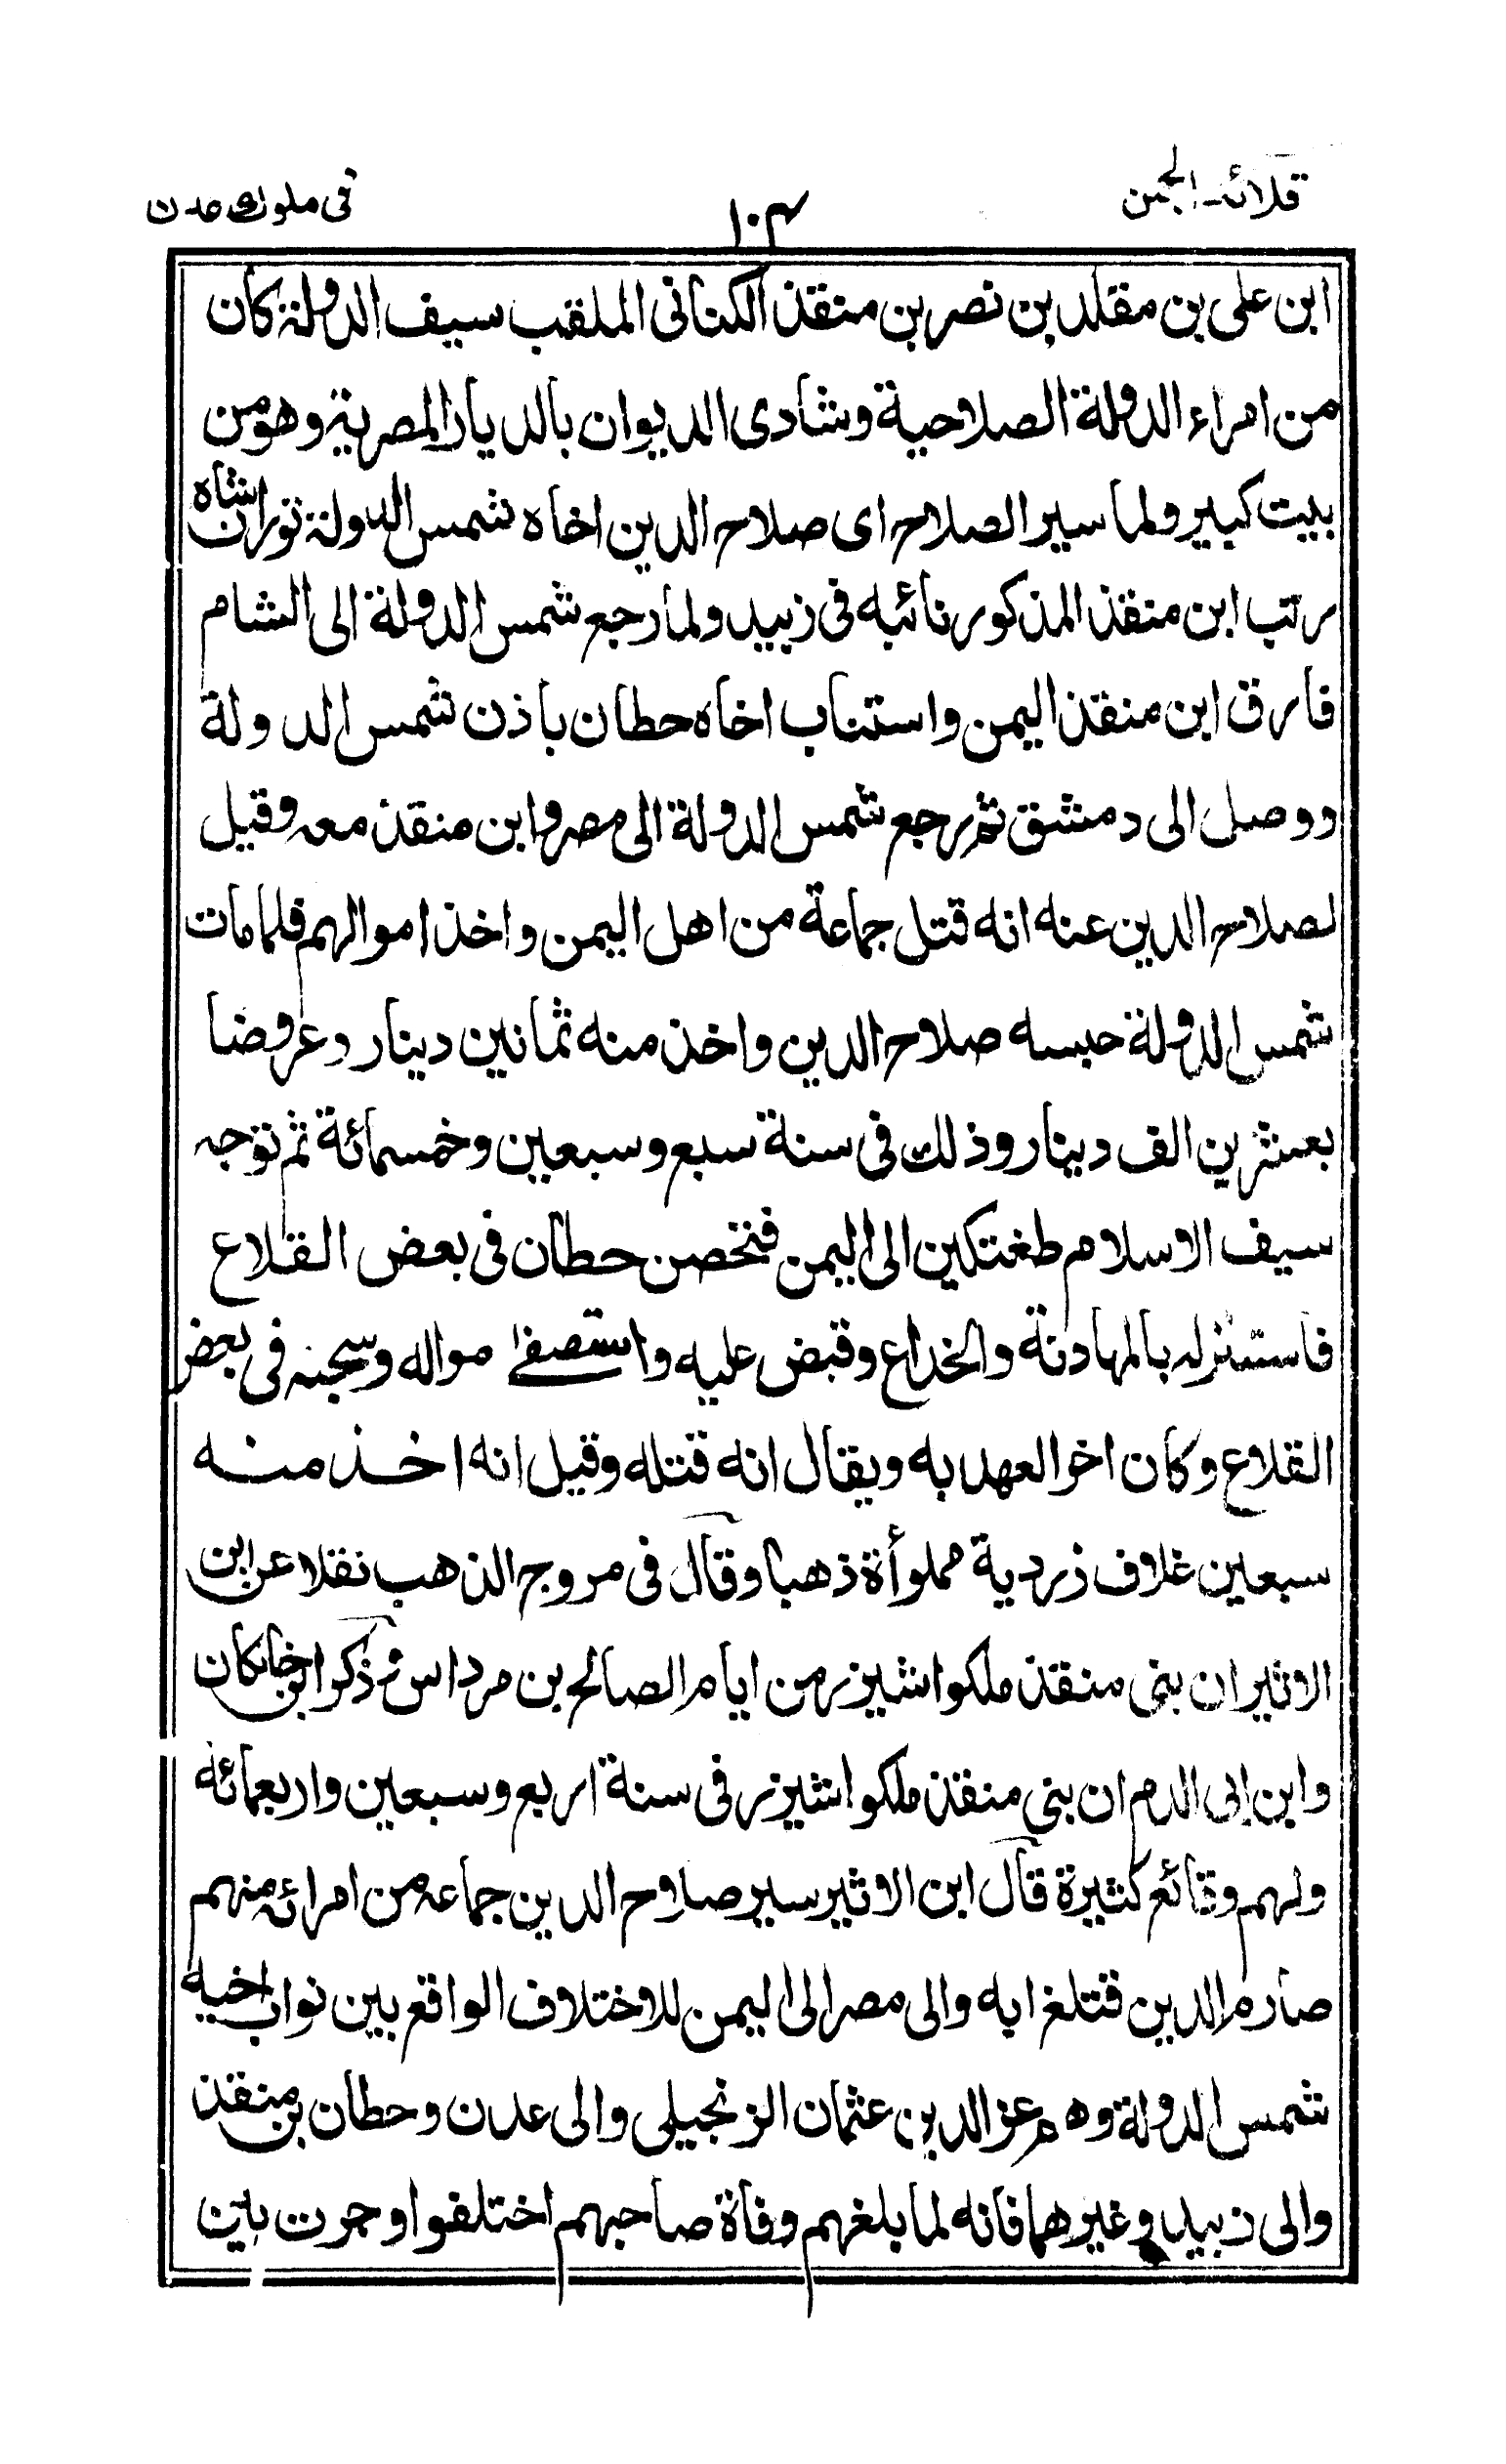 قلائد الجمن ١٠٣ فى ملوك عدن
ابن على بن مقلد بن نصر بن منقذ الكنانى الملقب سيف الدولة كان
من امراء الدولة الصلاحية وشادى الديوان بالديار المصرية وهو من
بيت كبير ولما سير الصلاح اى صلاح الدين اخاه شمس الدولة توران شاه
رتب ابن منقذ المذكور نائبه فى زبيد ولما رجع شمس الدولة الى الشام
فارق ابن منقذ اليمن واستناب اخاه حطان باذن شمس الدولة
ووصل الى دمشق ثم رجع شمس الدولة الى مصر وابن منقذ معه وقيل
لصلاح الدين عنه انه قتل جماعة من اهل اليمن واخذ اموالهم فلما مات
شمس الدولة حبسه صلاح الدين واخذ منه ثمانين دينار وعروضا
بعشرين الف دينار وذلك فى سنة سبع وسبعين وخمسمائة ثم توجه
سيف الاسلام طغتكين الى اليمن فتحصن حطان فى بعض القلاع
فاستنزله بالمهادنة والخداع وقبض عليه واستصفى مواله وسجنه فى بعض
القلاع وكان اخر العهد به ويقال انه قتله وقيل انه اخذ منه
سبعين غلاف زردية مملوأة ذهبا وقال فى مروج الذهب نقلا عن ابن
الاثير ان بنى منقذ ملكوا شيزر من ايام الصالح بن مرداس ثم ذكر ابن خلكان
وابن ابى الدم ان بنى منقذ ملكوا شيزر فى سنة اربع وسبعين واربعمائة
ولهم وقائع كثيرة قال ابن الاثير سير صلاح الدين جماعه من امرائه منهم
صارم الدين قتلغ ابه والى مصر الى اليمن للاختلاف الواقع بين نواب اخيه
شمس الدولة وهم عز الدين عثمان الزنجيلى والى عدن وحطان بن منقذ
والى زبيد وغيرهما فانه لما بلغهم وفاة صاحبهم اختلفوا وجرت بين